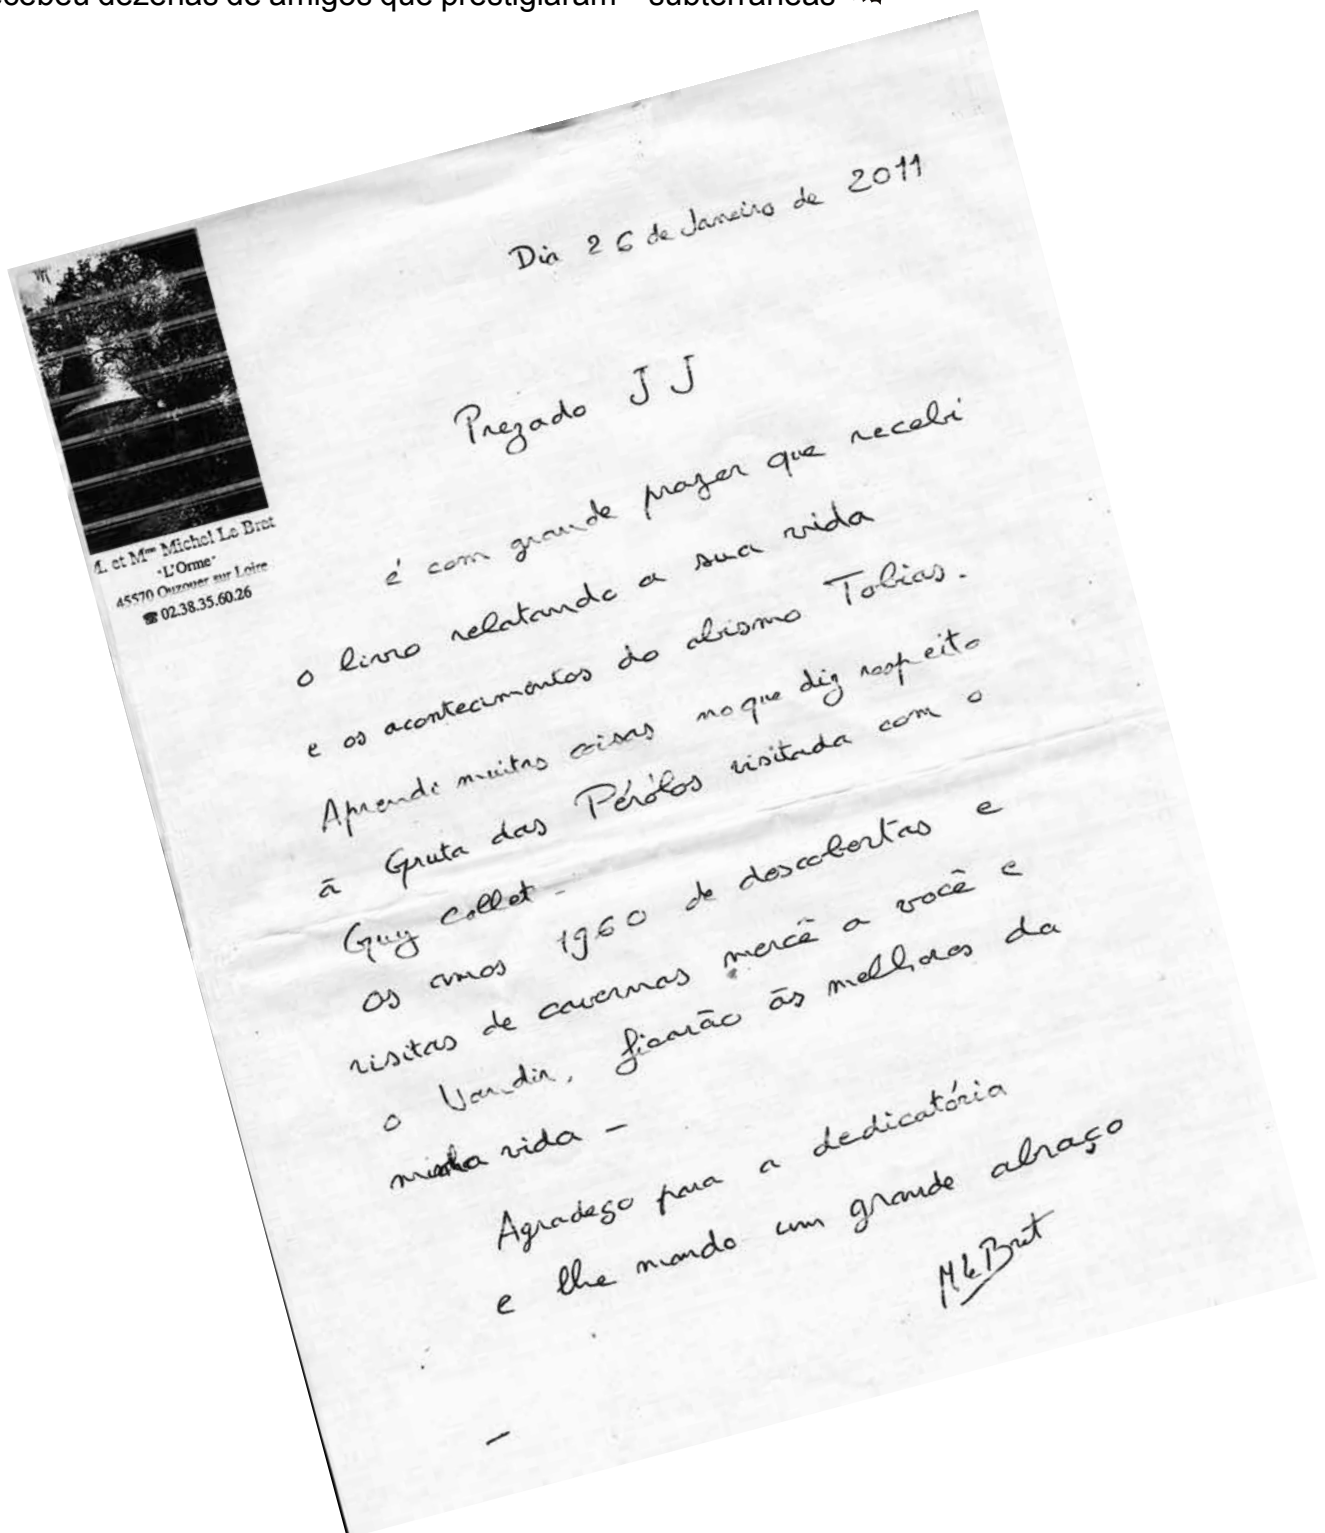 recebeu dezenas de amigos que prestigiaram subterrâneas
Dia 26 de Janeiro de 2011
M. et Mme Michel Le Bret
"L'Orme"
45570 Ouzouer sur Loire
☎ 02.38.35.60.26
Prezado J J
é com grande prazer que recebi
o livro relatando a sua vida
e os acontecimentos do abismo Tobias.
Aprendi muitas coisas no que diz respeito
ā Gruta das Pérólas visitada com o
Guy Collet -
Os anos 1960 de descobertas e
visitas de cavernas mercê a você e
o Vandir, ficarão ās melhores da
minha vida -
Agradeço para a dedicatória
e lhe mando um grande abraço
M Le Bret